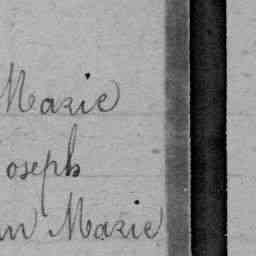 Marie
oseph
n Marie